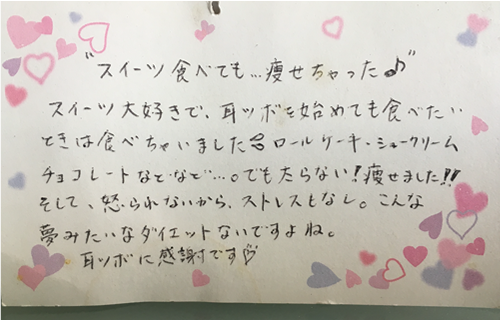 "スイーツ食べても…痩せちゃった♪"
スイーツ大好きで、耳ツボを始めても食べたい
ときは食べちゃいました ロールケーキ・シュークリーム
チョコレートなどなど…。でも太らない!痩せました!!
そして、怒られないから、ストレスもなし。こんな
夢みたいなダイエットないですよね。
耳ツボに感謝です♡